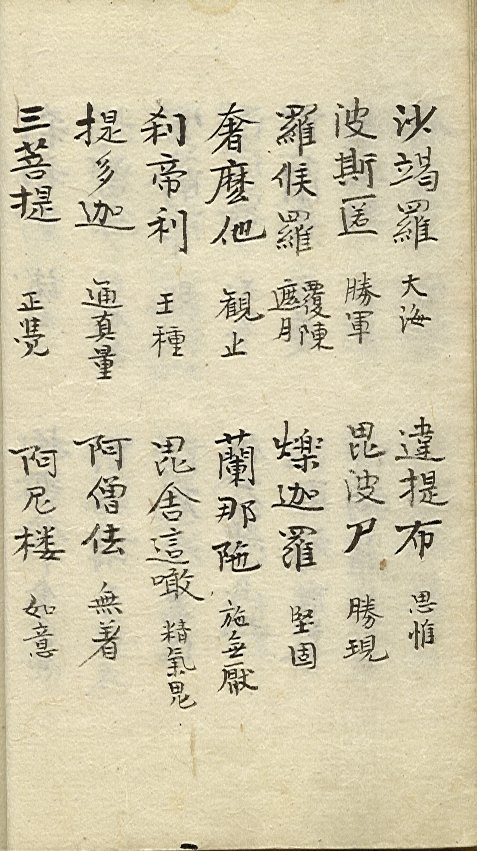 沙竭羅 大海 違提布 思惟
波斯匿 勝軍 毘波尸 勝現
羅候羅 覆陳遮月 爍迦羅 堅固
奢麼他 観止 蘭那陁 施無厭
刹帝利 王種 毘舎這噉 精氣鬼
提多迦 通真量 阿僧佉 無着
三菩提 正覺 阿尼楼 如意